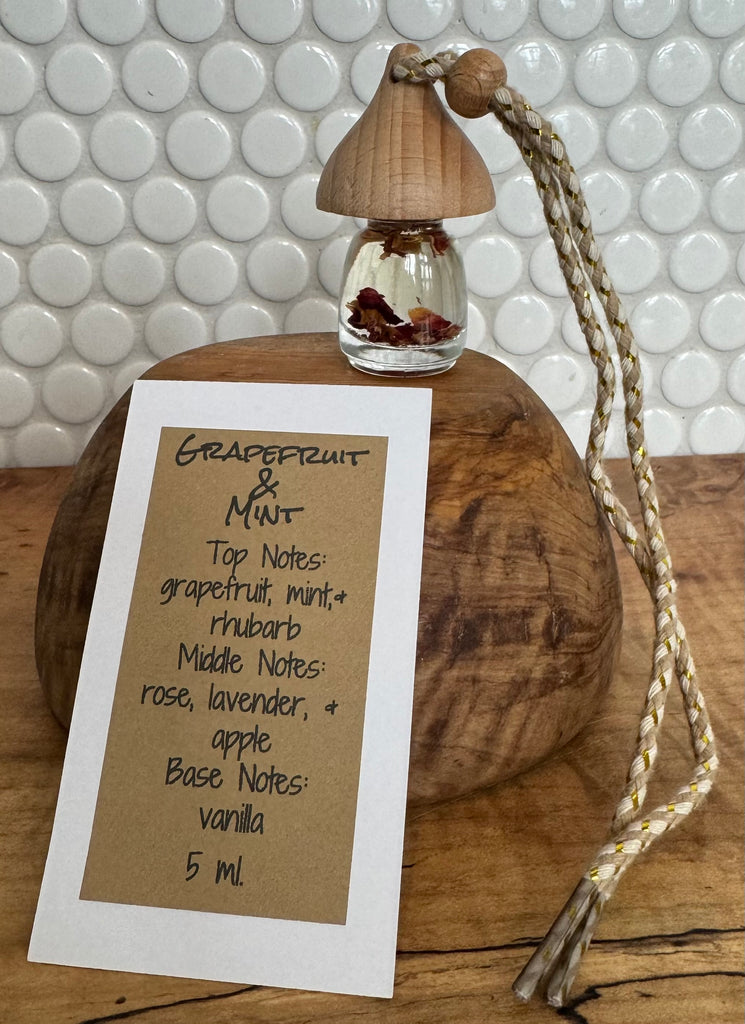 Grapefruit
&
Mint
Top Notes:
grapefruit, mint,&
rhubarb
Middle Notes:
rose, lavender, &
apple
Base Notes:
vanilla
5 ml.